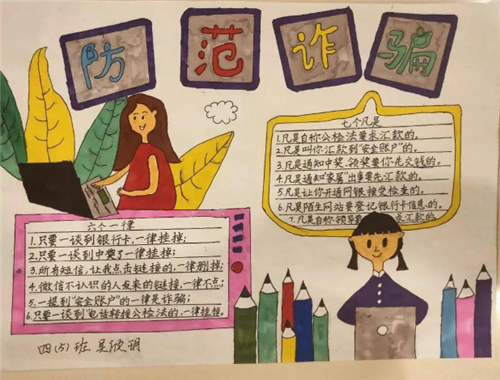 防范诈骗
七个凡是
1.凡是自称公检法要求汇款的。
2.凡是叫你汇款到"安全账户"的。
3.凡是通知中奖、领奖要你先交钱的。
4.凡是通知"家属"出事要先汇款的。
5.凡是让你开通网银接受检查的。
6.凡是陌生网站要登记银行卡信息的。
7.凡是自称领导要 汇款的。
六个一律
1.只要一谈到银行卡,一律挂掉;
2.只要一谈到中奖了一律挂掉;
3.所有短信,让我点击链接的,一律删掉;
4.微信不认识的人发来的链接,一律不点;
5.一提到"安全账户"的一律是诈骗;
6.只要一谈到"电话转接公检法的,一律挂掉。
四(5)班 吴欣玥